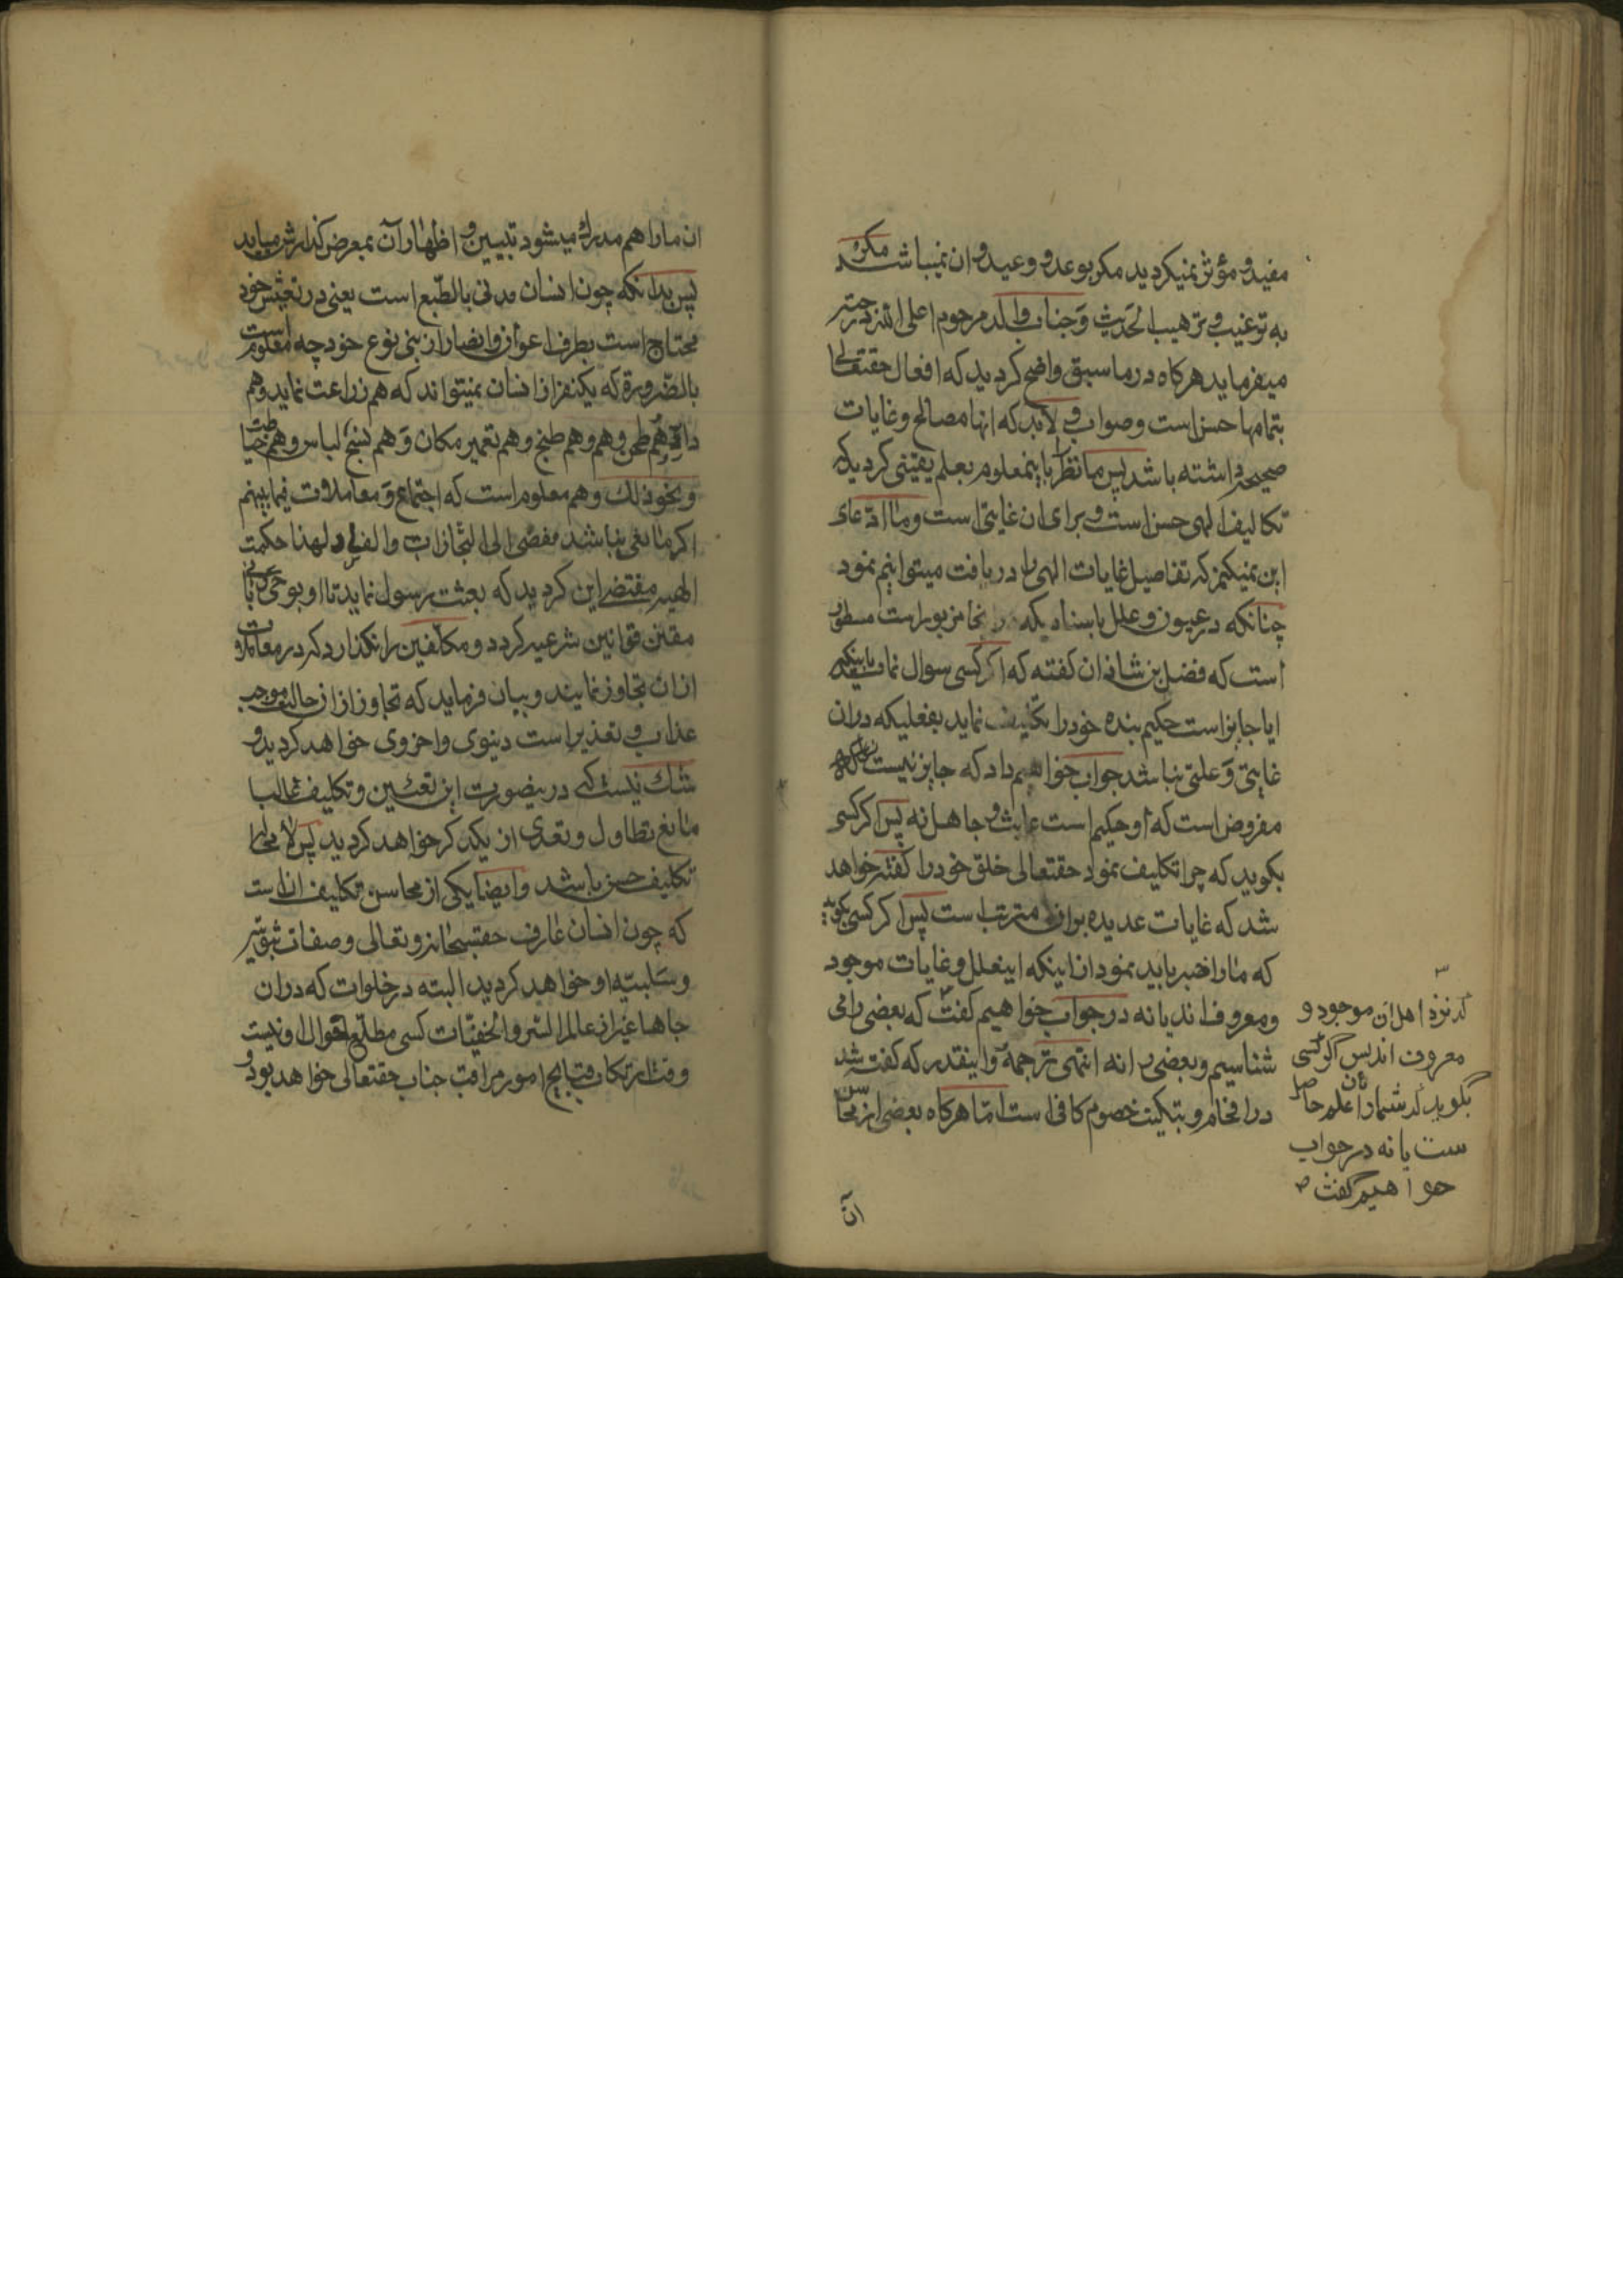 مفید و مؤثر نمیگردید مکر بوعد و وعید و ان نمیباشد مکر
به ترغیب و ترهیب الحدیث و جناب والد مرحوم اعلی الله درجته
میفرماید هرکاه در ما سبق واضح کردید که افعال حقتعالی
بتمامها حسن است و صواب و لابد که انها مصالح و غایات
صحیحه داشته باشد پس ما نظر باینمعلوم بعلم یقینی کردیم که
تکالیف الهی حسن است و برای ان غایتی است و ما ادعای
این نمیکنیم که تفاصیل غایات الهی را دریافت میتوانیم نمود
چنانکه در عیون و علل باسنادیکه در انجا مزبور است مسطور
است که فضل بن شاذان کفته که اکر کسی سوال نماید باینکه
ایا جایز است حکیم بنده خود را تکلیف نماید بفعلیکه دران
غایتی و علتی نباشد جواب خواهیم داد که جایز نیست زیراکه
مفروض است که او حکیم است عابث و جاهل نه پس اکر کسی
بکوید که چرا تکلیف نمود حقتعالی خلق خود را کفته خواهد
شد که غایات عدیده بران مترتب است پس اکر کسی بکوید
که ما را خبر باید نمود از اینکه اینعلل و غایات موجود
و معروف اند یا نه در جواب خواهیم کفت که بعضی را می
شناسیم و بعضی را نه انتهی ترجمة و اینقدر که کفته شد
در افحام و تبکیت خصوم کافی است اما هرکاه بعضی از محاسن
که نزد اهل ان موجود و
معروف اند پس اگر کسی
بگوید که شما را علم بان حاصل
ست یا نه در جواب
خواهیم گفت
ان
ان ما را هم مدرک میشود تبیین و اظهار آن بمعرض کذارش میاید
پس بدانکه چون انسان مدنی بالطبع است یعنی در تعیش خود
محتاج است بطرف اعوان و انصار از بنی نوع خود چه معلوم است
بالضرورة که یکنفر از انسان نمیتواند که هم زراعت نماید و هم
و هم طحن و هم و هم طبخ و هم تعمیر مکان و هم نسج لباس و هم خیاطت
و نحو ذلک و هم معلوم است که اجتماع و معاملات فیما بینهم
اکر مانعی نباشد مفضی الی التجاذب و الفساد لهذا حکمت
الهیه مقتضی این کردید که بعثت رسول نماید تا او بوحی ربانی
مقنن قوانین شرعیه کردد و مکلفین را نکذارد که در معاملات
ازان تجاوز نمایند و بیان فرماید که تجاوز ازان حالت موجب
عذاب و تعذیر است دینوی و اخروی خواهد کردید و
شک نیست که درینصورت این تعیین و تکلیف غالبا
مانع تطاول و تعدی از یکدکر خواهد کردید پس لا محاله
تکلیف حسن باشد و ایضا یکی از محاسن تکلیف ان است
که چون انسان عارف حقسبحانه و تعالی و صفات ثبوتیه
و سلبیه او خواهد کردید البته در خلوات که دران
جاها غیر از عالم السر و الخفیات کسی مطلع احوال او نیست
وقت ارتکاب قبایح امور مراقب جناب حقتعالی خواهد بود و